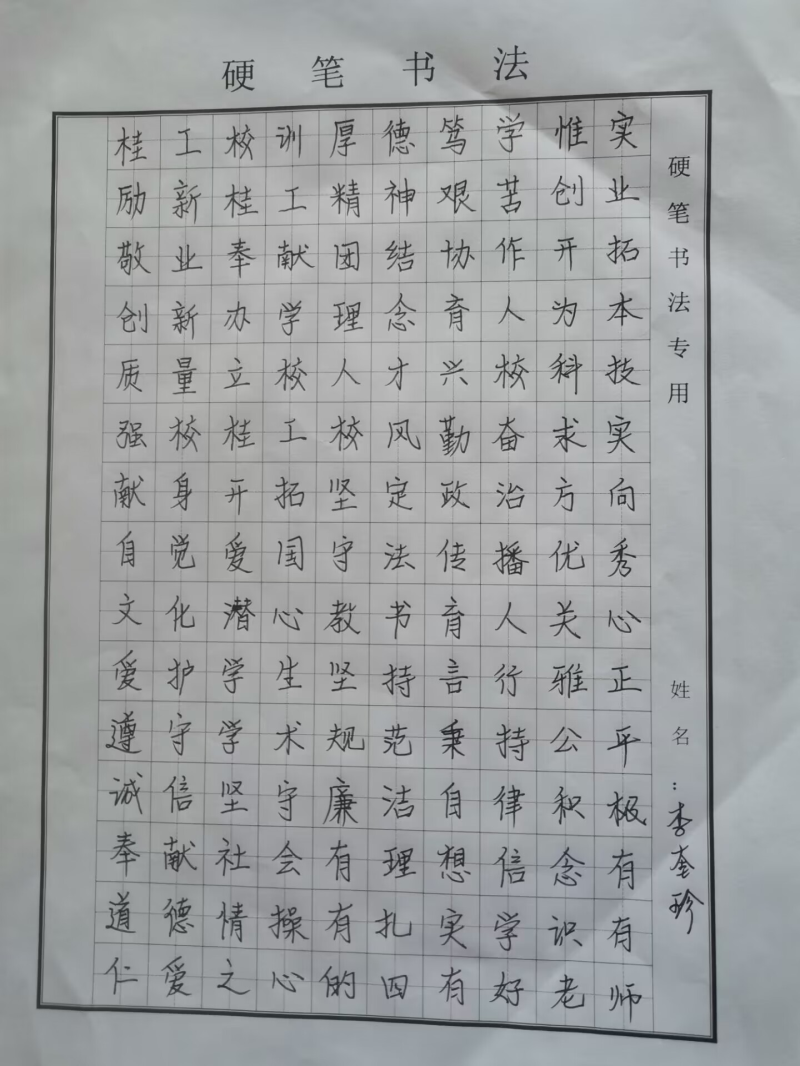 硬笔书法
桂工校训厚德笃学惟实
励新桂工精神艰苦创业
敬业奉献团结协作开拓
创新办学理念育人为本
质量立校人才兴校科技
强校桂工校风勤奋求实
献身开拓坚定政治方向
自觉爱国守法传播优秀
文化潜心教书育人关心
爱护学生坚持言行雅正
遵守学术规范秉持公平
诚信坚守廉洁自律积极
奉献社会有理想信念有
道德情操有扎实学识有
仁爱之心的四有好老师
硬笔书法专用
姓名：李奎珍